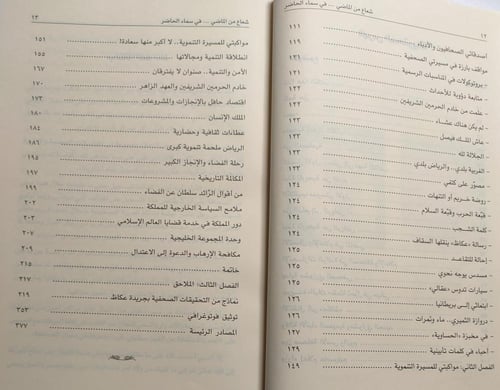 ١٢ شعاع من الماضي ... في سماء الحاضر
أصدقائي الصحافيون والأدباء ١١١
مواقف بارزة في مسيرتي الصحفية ١٢٢
- بروتوكولات في المناسبات الرسمية ١٢٢
- متابعة دؤوبة للأحداث ١٢٢
- علمت من خادم الحرمين الشريفين ١٢٢
- لم يكن هناك عشاء ١٢٢
- عاش الملك فيصل ١٢٣
- الجلالة لله ١٢٣
- الغربية بلدي.. والرياض بلدي ١٢٣
- مصوّر على كتفي ١٢٣
- روضة خريم أو التنهات ١٢٤
- قبلة الحرب وقبلة السلام ١٢٤
- كلمة الشجب ١٢٤
- رسالة «عكاظ» ينقلها السقاف ١٢٤
- إحالة للتقاعد ١٢٥
- مسدس يوجه نحوي ١٢٥
- سيارات تدوس «عقالي» ١٢٥
- ابتعاثي إلى بريطانيا ١٢٦
- دروازة الثميري.. ماء وتمرات ١٢٦
- في مخبزة «الحساوية» ١٢٧
- أحياء في كلمات تأبينية ١٢٩
الفصل الثاني: مواكبتي للمسيرة التنموية ١٤٩
شعاع من الماضي ... في سماء الحاضر ١٣
مواكبتي للمسيرة التنموية.. لا أكبر منها سعادة! ١٥١
انطلاقة التنمية ومجالاتها ١٥٥
الأمن والتنمية.. صنوان لا يفترقان ١٦٧
خادم الحرمين الشريفين والعهد الزاهر ١٧٠
اقتصاد حافل بالإنجازات والمشروعات ١٧٣
الملك الإنسان ١٨٠
عطاءات ثقافية وحضارية ١٨٤
الرياض ملحمة تنموية كبرى ١٨٦
رحلة الفضاء والإنجاز الكبير ١٩٥
المكالمة التاريخية ١٩٧
من أقوال الرَّائد سلطان عن الفضاء ١٩٩
ملامح السياسة الخارجية للمملكة ٢٠٢
دور المملكة في خدمة قضايا العالم الإسلامي ٢٠٣
وحدة المجموعة الخليجية ٢٠٧
مكافحة الإرهاب والدعوة إلى الاعتدال ٢٠٩
خاتمة ٢١٥
الفصل الثالث: الملاحق ٣١٧
نماذج من التحقيقات الصحفية بجريدة عكاظ ٣١٩
توثيق فوتوغرافي ٣٥٣
المصادر الرئيسة ٣٧٧